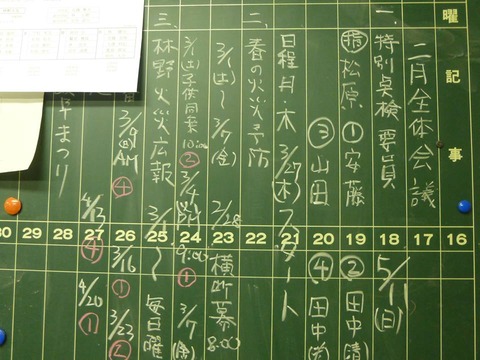 曜
記
事
16
17
18
19
20
21
22
23
24
25
26
27
28
29
30
二月全体会議
一、特別点検要員
5/11(日)
指 松原 ① 安藤 ② 田中(清)
③ 山田 ④ 田中
日程 月・木 3/27(木) スタート
二、春の火災予防
3/1(土)~3/7(金) 2/28 横断幕 8:00
3/1(土) 子供同乗 10:00 ② 3/4 9:00 ① 3/7(金)
三、林野火災広報 3/1~毎日曜
3/9(日)AM ④ 3/16 ① 3/23 ②
4/13 ④ 4/20 ①
まつり